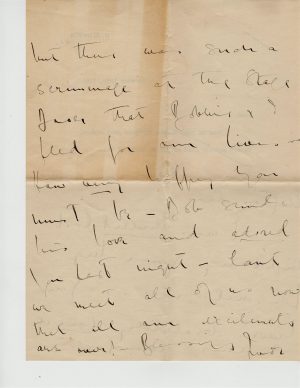 but there was such a
scrummage at the Stage
Door that Bobbie & I
fled for our lives —
How very happy you
must be — Bob send
his love and
last night — Can't
we meet all of us now
that all our
are over! — Blessings